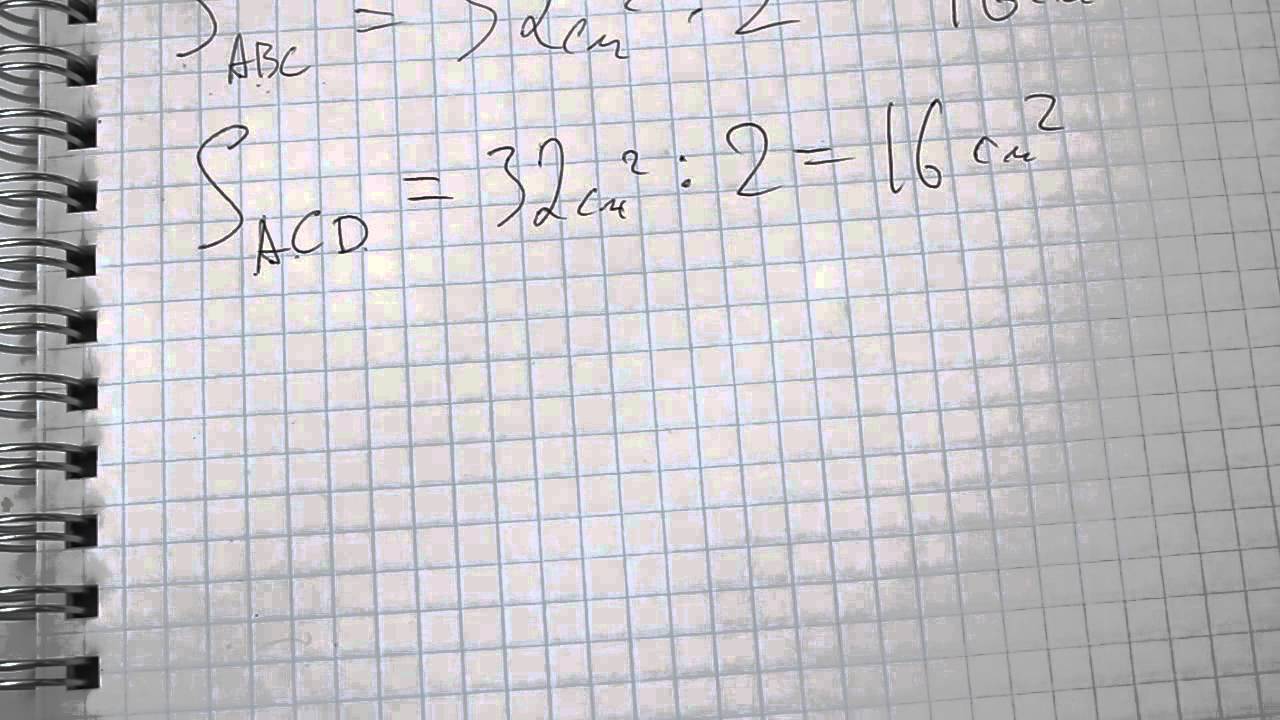 S ABC = 32 см² : 2 16 см
S ACD = 32 см² : 2 = 16 см²